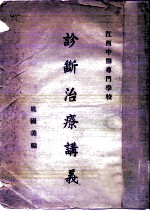 江西中醫專門學校
診斷治療講義
姚國美編